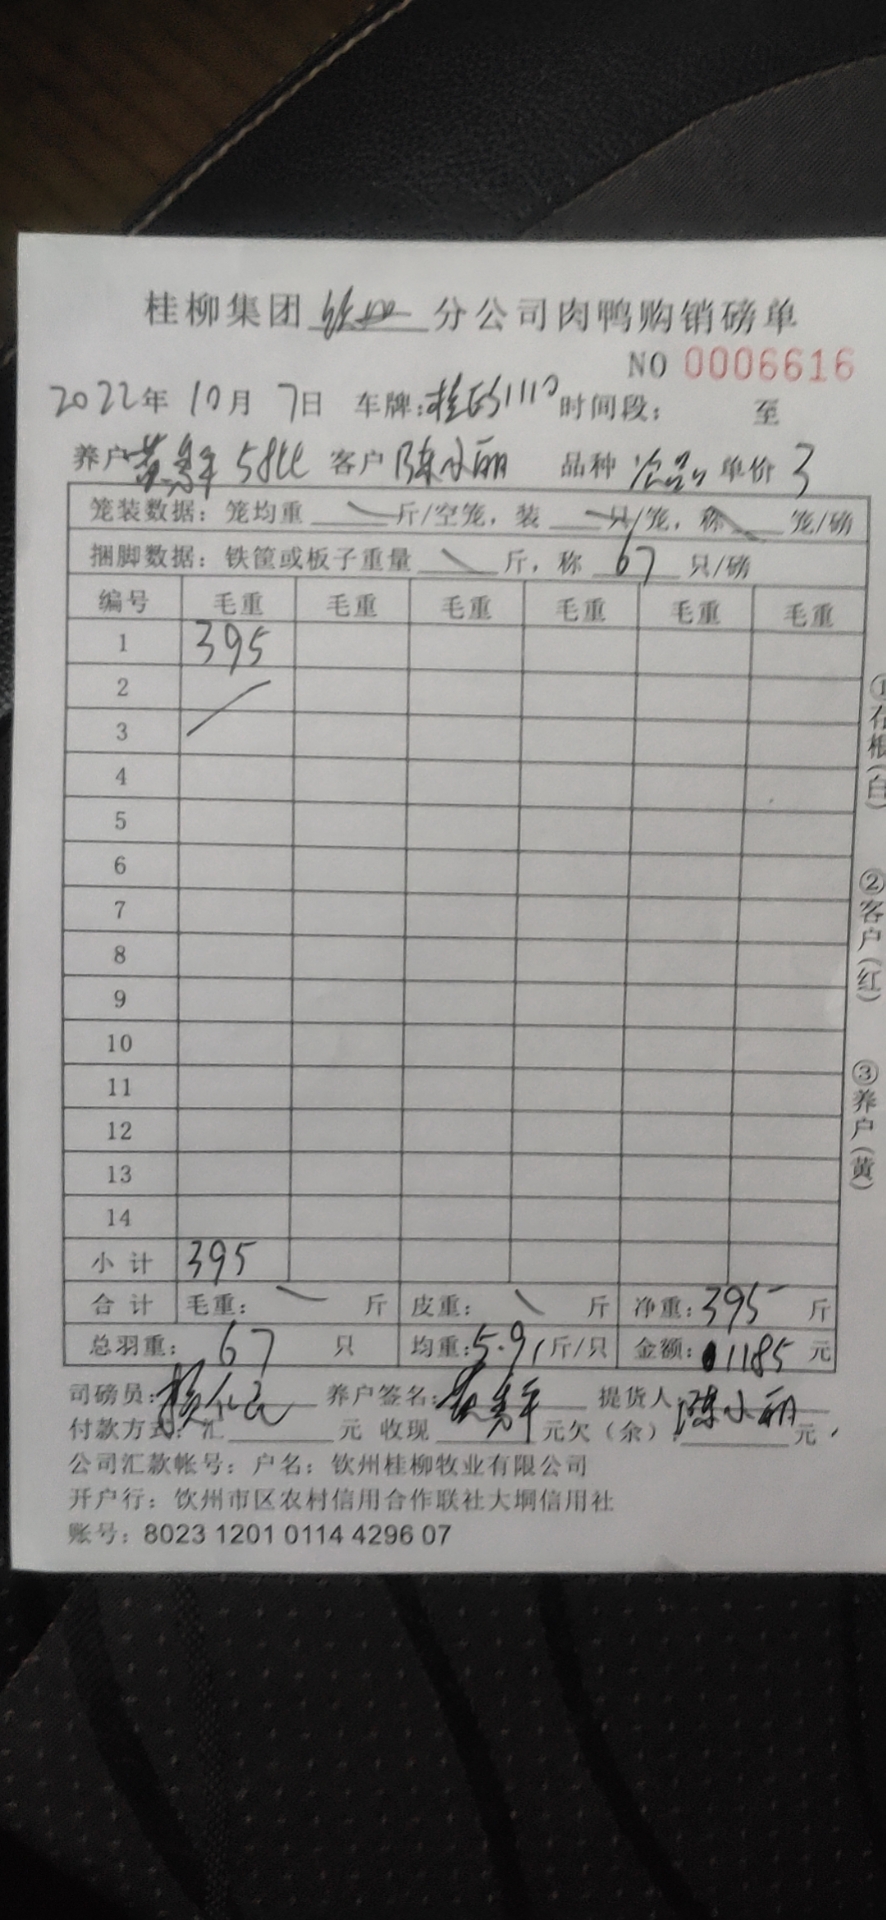 桂柳集团 钦州 分公司肉鸭购销磅单
NO 0006616
2022年 10月 7日 车牌: 时间段: 至
养户 客户 陈小丽 品种 单价 3
笼装数据:笼均重 斤/空笼,装 只/笼,称 笼/磅
捆脚数据:铁筐或板子重量 斤,称 67 只/磅
编号 毛重 毛重 毛重 毛重 毛重 毛重
1 395
2
3
4
5
6
7
8
9
10
11
12
13
14
小 计 395
合 计 毛重: 斤 皮重: 斤 净重:395 斤
总羽重: 67 只 均重:5.91斤/只 金额:1185 元
司磅员: 养户签名: 提货人:陈小丽
付款方式:汇 元 收现 元欠(余) 元
公司汇款帐号:户名:钦州桂柳牧业有限公司
开户行:钦州市区农村信用合作联社大垌信用社
账号:8023 1201 0114 4296 07
①存根(白)
②客户(红)
③养户(黄)